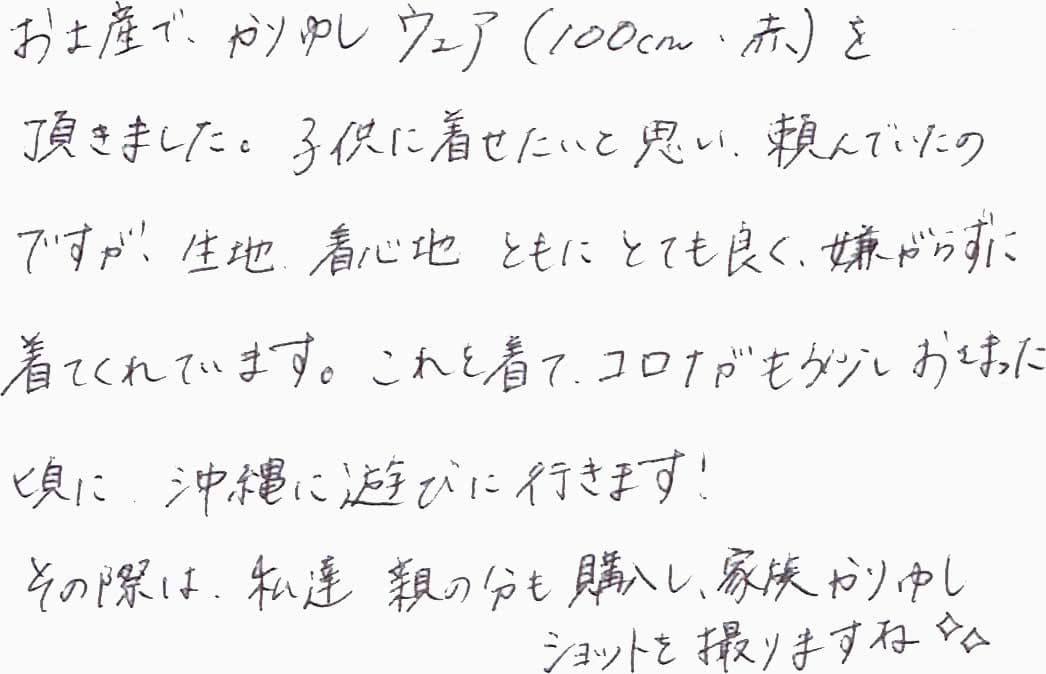 お土産で、かりゆしウェア（100cm・赤）を
頂きました。子供に着せたいと思い、頼んでいたの
ですが、生地、着心地ともにとても良く、嫌がらずに
着てくれています。これを着て、コロナがもう少しおさまった
頃に、沖縄に遊びに行きます！
その際は、私達親の分も購入し、家族かりゆし
ショットを撮りますね✧✧